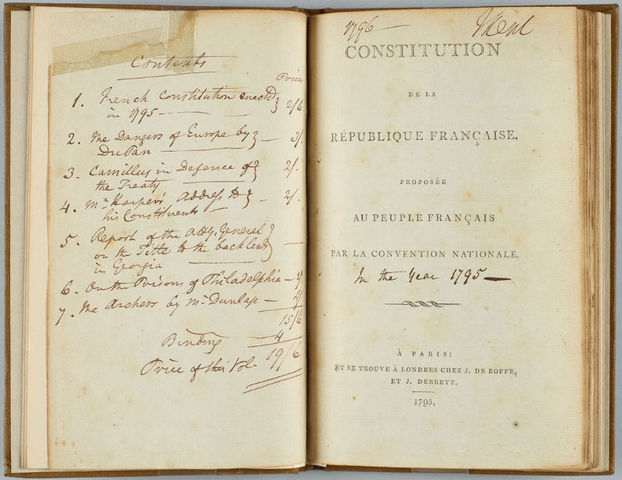 Contents
Price
1. French Constitution enacted
in 1795 — 2/6
2. The Dangers of Europe by
DuPan —
3. Camillus in Defence of
the Treaty — 2/.
4. Mr Harper's Address to
his Constituents — 2/.
5. Report of the Atty. General
on the Title to the back land
in Georgia —
6. On the Prisons of Philadelphia —
7. The Archers by Mr Dunlap —
15/6
Binding 4
Price of this Vol. 19/6
1796 —
CONSTITUTION
DE LA
RÉPUBLIQUE FRANÇAISE,
PROPOSÉE
AU PEUPLE FRANÇAIS
PAR LA CONVENTION NATIONALE.
In the Year 1795 —
À PARIS:
ET SE TROUVE À LONDRES CHEZ J. DE BOFFE,
ET J. DEBRETT.
1795.